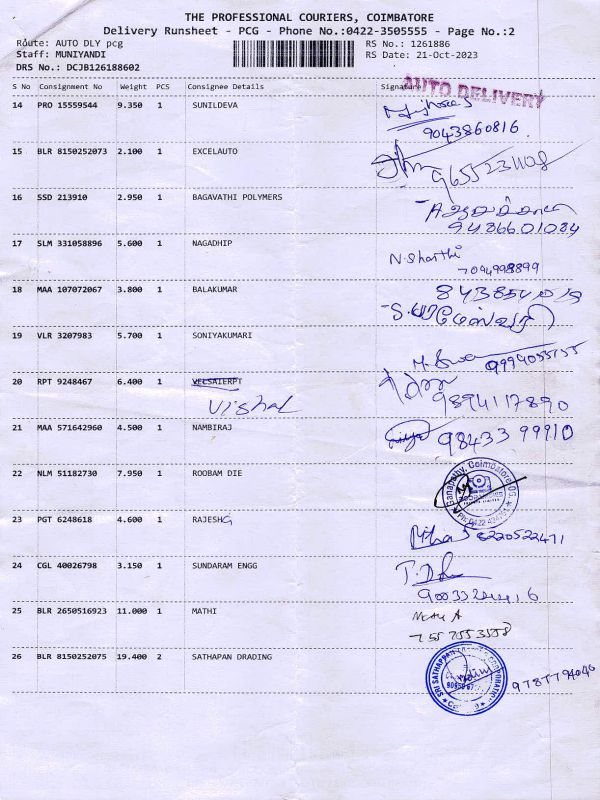 THE PROFESSIONAL COURIERS, COIMBATORE
Delivery Runsheet - PCG - Phone No.:0422-3505555 - Page No.:2
Route: AUTO DLY pcg RS No.: 1261886
Staff: MUNIYANDI RS Date: 21-Oct-2023
DRS No.: DCJB126188602
AUTO DELIVERY
S No Consignment No Weight PCS Consignee Details Signature
14 PRO 15559544 9.350 1 SUNILDEVA
9043860816
15 BLR 8150252073 2.100 1 EXCELAUTO
9655231108
16 SSD 213910 2.950 1 BAGAVATHI POLYMERS
9486601084
17 SLM 331058896 5.600 1 NAGADHIP N. Sharthi
7094998899
18 MAA 107072067 3.800 1 BALAKUMAR
19 VLR 3207983 5.700 1 SONIYAKUMARI
20 RPT 9248467 6.400 1 VELSAIERPT
Vishal 9894117890
21 MAA 571642960 4.500 1 NAMBIRAJ 98433 99910
22 NLM 51182730 7.950 1 ROOBAM DIE
Ganapathy, Coimbatore
23 PGT 6248618 4.600 1 RAJESHG
8220522471
24 CGL 40026798 3.150 1 SUNDARAM ENGG
25 BLR 2650516923 11.000 1 MATHI
7557553558
26 BLR 8150252075 19.400 2 SATHAPAN DRADING
SRI SATHAPPAN